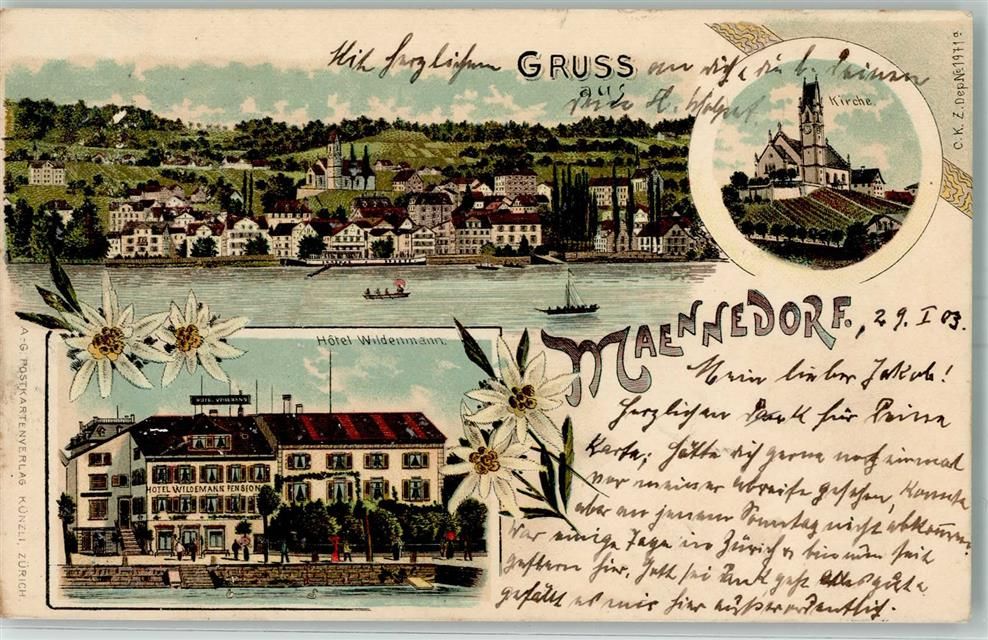 Mit herzlichem GRUSS an dich & die l. Deinen
aus
dein H.
Kirche.
C.K.Z. Dep. No 1971 a
MAENNEDORF., 29. I 03.
Hôtel Wildenmann.
HOTEL WILDEMANN
HOTEL WILDEMANN PENSION
Mein lieber Jakob!
Herzlichen Dank für Deine
Karte; hätte dich gerne noch einmal
vor meiner Abreise gesehen, konnte
aber an jenem Sonntag nicht abkommen.
War einige Tage in Zürich & bin nun seit
gestern hier. Gott sei Dank geht Alles gut &
gefällt es mir hier außerordentlich.
A.-G. POSTKARTENVERLAG KÜNZLI, ZÜRICH.